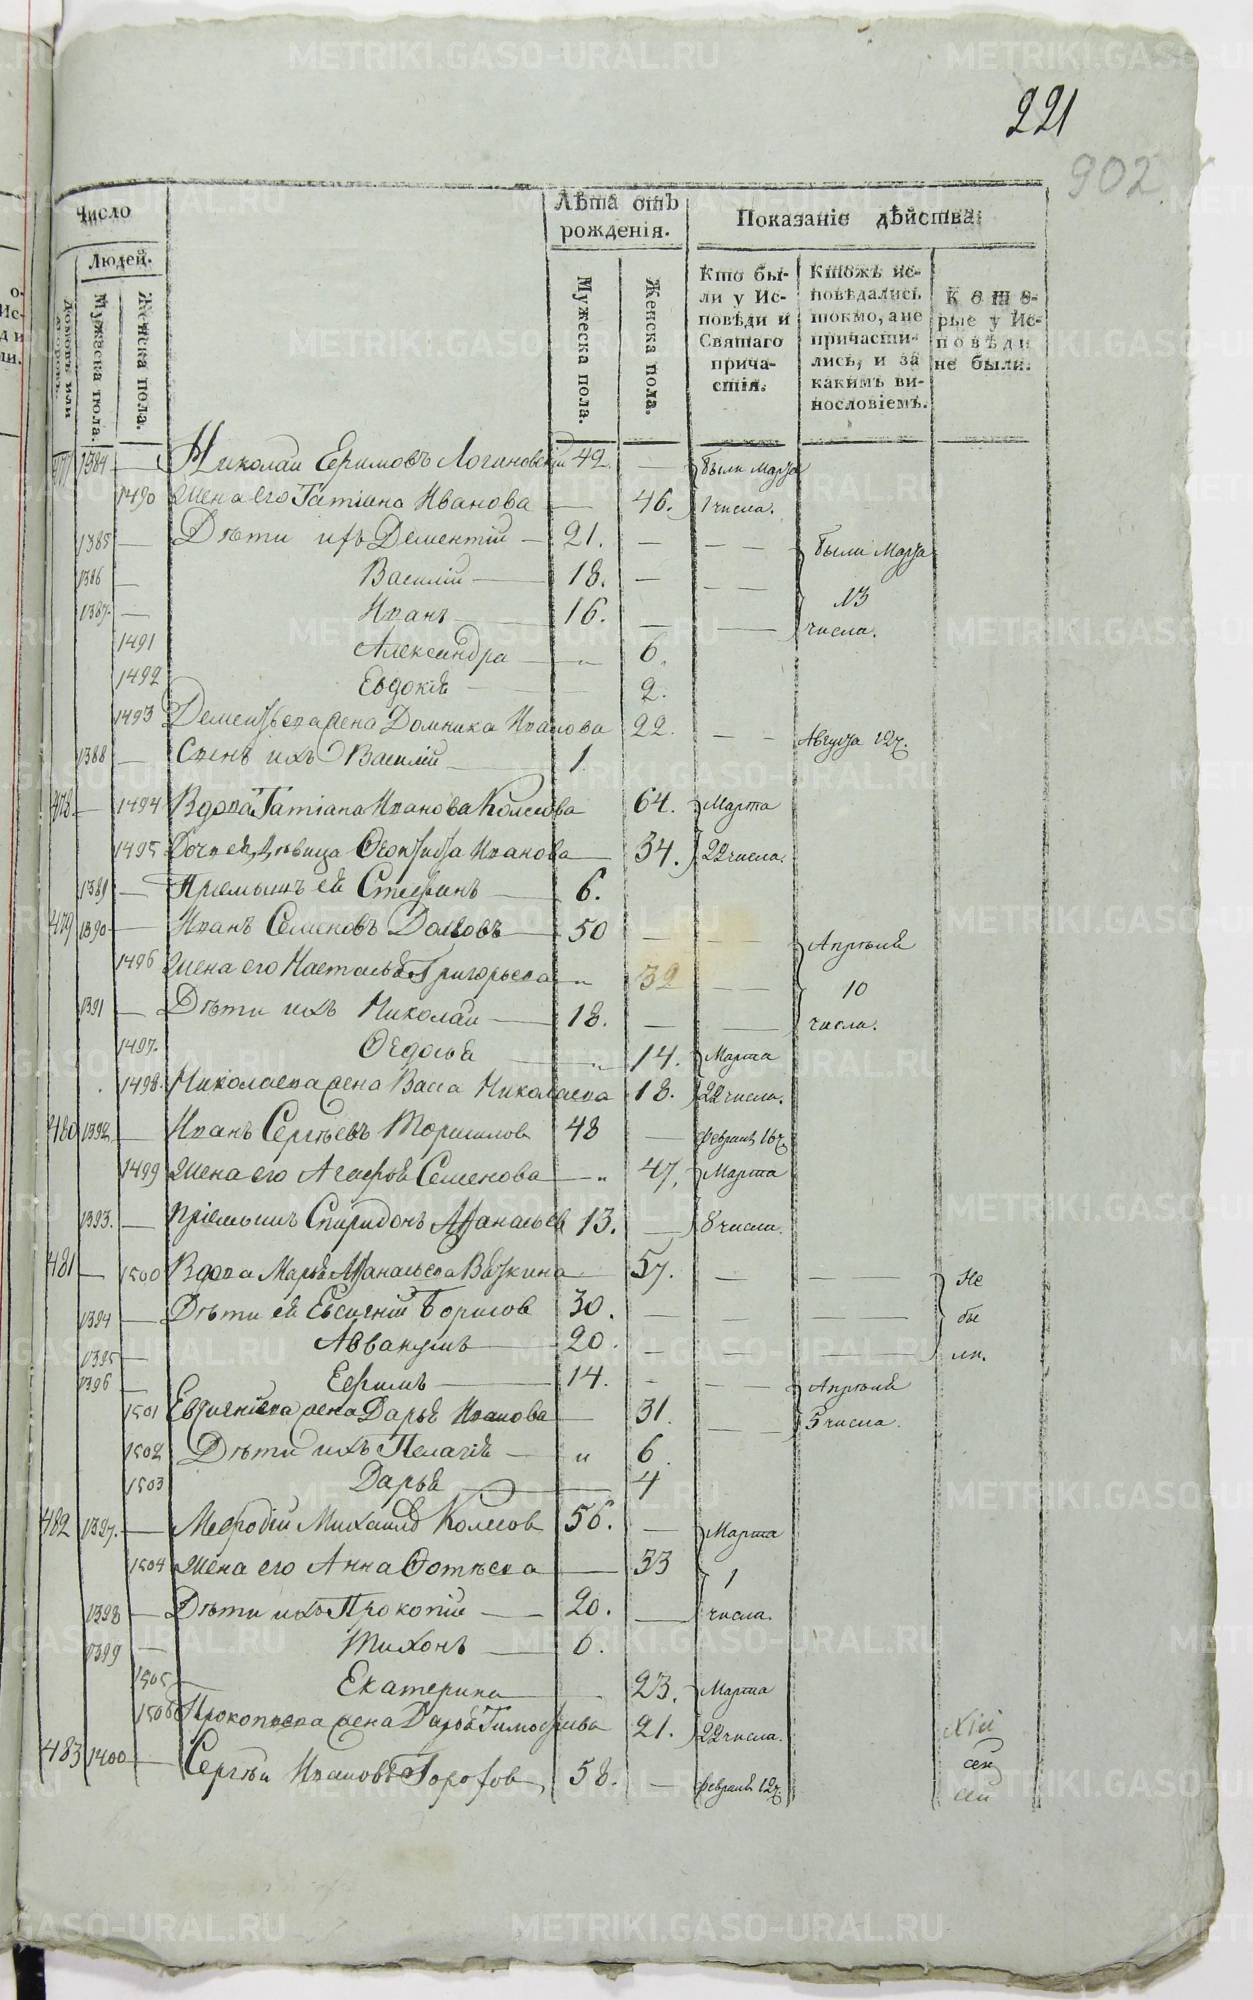 221
902
Число
Людей.
Домовъ или дворовъ.
Мужеска пола.
Женска пола.
Лѣта отъ рожденія.
Мужеска пола.
Женска пола.
Показаніе дѣйства:
Кто бы-
ли у Ис-
повѣди и
Святаго
прича-
стія.
Ктожъ ис-
повѣдались
токмо, а не
причасти-
лись, и за
какимъ ви-
нословіемъ.
Кото-
рые у Ис-
повѣди
не были.
477 1384 — Николай Ефимовъ Логиновскій 49. — были марта
1490 Жена его Татіана Иванова — 46. 1 числа.
1385 — Дѣти ихъ Дементій — 21. — — — были марта
1386 — Василій — 18. — — — 13
1387. — Иванъ — 16. — — числа.
1491 Александра — „ 6.
1492 Евдокія — — 2.
1493 Дементьева жена Домника Иванова 22. — — Августа 12 ч.
1388 — Сынъ ихъ Василій — 1
478. — 1494 Вдова Татіана Иванова Колесова 64. Марта
1495 Дочь ея, дѣвица Ѳеоктиста Иванова — 34. 22 числа.
1389 — Пріемышъ ея Стефанъ — 6.
479 1390 — Иванъ Семеновъ Долговъ — 50 — — — Апрѣля
1496 Жена его Настасья Григорьева — „ 32 — — 10
1391 — Дѣти ихъ Николай — 18. — — числа.
1497. Ѳедосья — „ 14. Марта
1498. Николаева жена Васса Николаева 18. 22 числа.
480 1392. — Иванъ Сергѣевъ Торшилов 48 — февраля 16 ч.
1499 Жена его Агафья Семенова — „ 47. Марта
1393. — Пріемышъ Спиридонъ Афанасьев 13. — 8 числа.
481 — 1500 Вдова Марья Афанасьева Вяткина — 57. — — Не
1394 — Дѣти ея Евсигній Борисов 30. — — — — бы
1395 — Аввакумъ — 20. — — — ли.
1396 — Ефимъ — 14. — — — Апрѣля
1501 Евсигніева жена Дарья Иванова — 31. — — 5 числа.
1502 Дѣти ихъ Пелагія — „ 6
1503 Дарья — 4
482 1397. — Мефодій Михаилов Колесов 56. — Марта
1504 Жена его Анна Фотѣева — 53 1
1398 — Дѣти ихъ Прокопій — 20. — числа.
1399 — Тихонъ — 6.
1505 Екатерина — 23. Марта
1506 Прокопьева жена Дарья Тимофеева 21. 22 числа.
483 1400 — Сергѣй Ивановъ Горохов 58. — февраля 12 ч.
METRIKI.GASO-URAL.RU